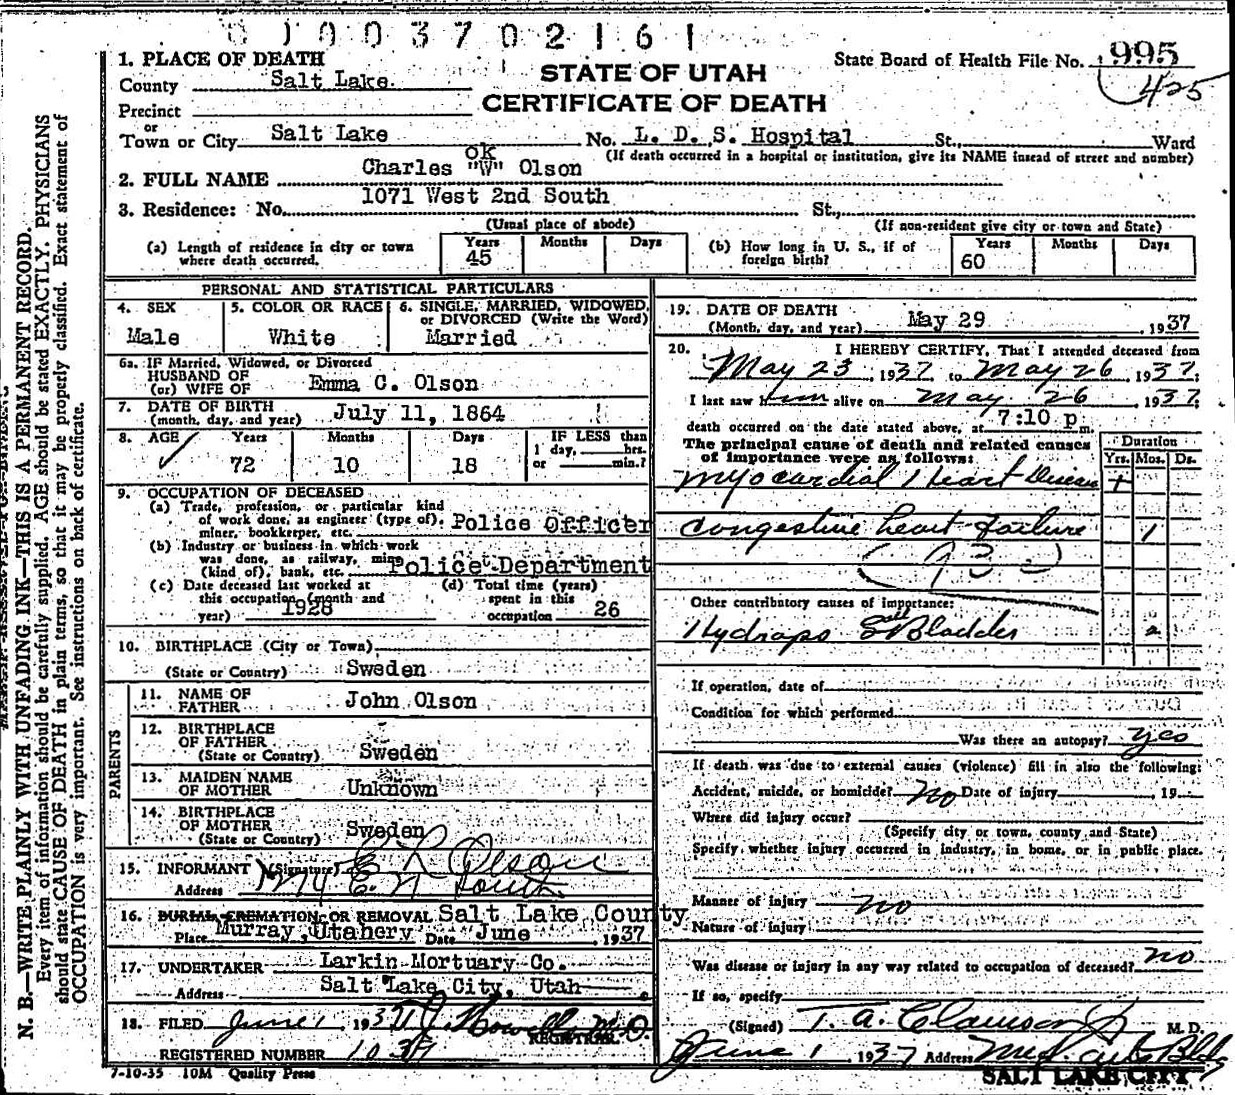 0 0 0 3 7 0 2 1 6 1
1. PLACE OF DEATH
County Salt Lake.
Precinct
or
Town or City Salt Lake
STATE OF UTAH
CERTIFICATE OF DEATH
State Board of Health File No. 995
425
No. L. D. S. Hospital St., Ward
(If death occurred in a hospital or institution, give its NAME insead of street and number)
ok
2. FULL NAME Charles "W" Olson
3. Residence: No. 1071 West 2nd South St.,
(Usual place of abode) (If non-resident give city or town and State)
(a) Length of residence in city or town where death occurred. Years 45 Months Days
(b) How long in U. S., if of foreign birth? Years 60 Months Days
PERSONAL AND STATISTICAL PARTICULARS
4. SEX Male
5. COLOR OR RACE White
6. SINGLE, MARRIED, WIDOWED, or DIVORCED (Write the Word) Married
6a. IF Married, Widowed, or Divorced
HUSBAND OF
(or) WIFE OF Emma C. Olson
7. DATE OF BIRTH
(month, day, and year) July 11, 1864
8. AGE ✓ Years 72 Months 10 Days 18 IF LESS than 1 day, hrs. or min.?
9. OCCUPATION OF DECEASED
(a) Trade, profession, or particular kind
of work done, as engineer (type of).
miner, bookkeeper, etc. Police Officer
(b) Industry or business in which work
was done, as railway, mine
(kind of), bank, etc. Police Department
(c) Date deceased last worked at
this occupation (month and
year) 1928
(d) Total time (years)
spent in this
occupation 26
10. BIRTHPLACE (City or Town)
(State or Country) Sweden
PARENTS
11. NAME OF
FATHER John Olson
12. BIRTHPLACE
OF FATHER
(State or Country) Sweden
13. MAIDEN NAME
OF MOTHER Unknown
14. BIRTHPLACE
OF MOTHER
(State or Country) Sweden
15. INFORMANT (Signature) E L Olson
Address E. N South
16. BURIAL CREMATION OR REMOVAL Salt Lake County
Place Murray, Utahery Date June 1937
17. UNDERTAKER Larkin Mortuary Co.
Address Salt Lake City, Utah
18. FILED June 1 1937 T J Howells M.D.
REGISTRAR.
REGISTERED NUMBER 1037
7-10-35 10M Quality Press
19. DATE OF DEATH
(Month, day, and year) May 29, 1937
20. I HEREBY CERTIFY, That I attended deceased from
May 23, 1937 to May 26, 1937,
I last saw him alive on May 26, 1937,
death occurred on the date stated above, at 7:10 p m.
The principal cause of death and related causes
of importance were as follows:
Duration
Yrs. Mos. Ds.
Myocardial Heart Disease +
Congestive heart failure 1
(93 )
Other contributory causes of importance:
Hydrops Gall Bladder 2
If operation, date of
Condition for which performed
Was there an autopsy? yes
If death was due to external causes (violence) fill in also the following:
Accident, suicide, or homicide? No Date of injury 19
Where did injury occur?
(Specify city or town, county and State)
Specify whether injury occurred in industry, in home, or in public place.
Manner of injury no
Nature of injury
Was disease or injury in any way related to occupation of deceased? no
If so, specify
(Signed) T. A. Clawson Jr M. D.
June 1, 1937 Address Med. Arts Bldg
SALT LAKE CITY
N. B.—WRITE PLAINLY WITH UNFADING INK—THIS IS A PERMANENT RECORD.
Every item of information should be carefully supplied. AGE should be stated EXACTLY. PHYSICIANS
should state CAUSE OF DEATH in plain terms, so that it may be properly classified. Exact statement of
OCCUPATION is very important. See instructions on back of certificate.